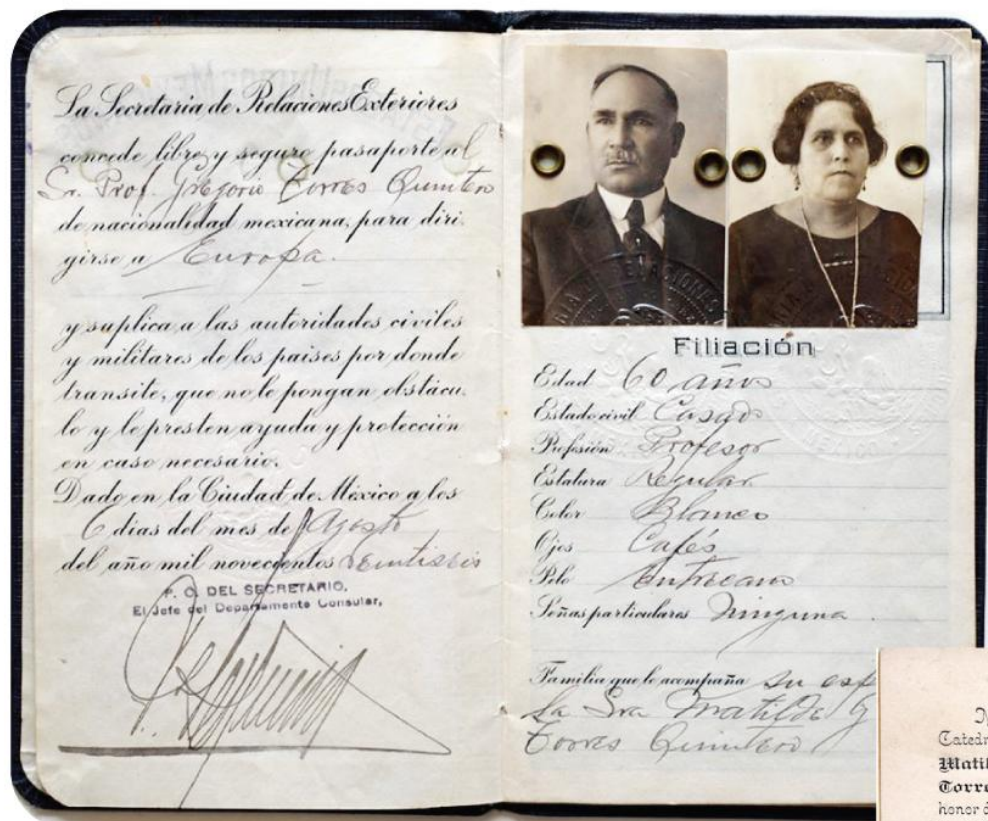 La Secretaria de Relaciones Exteriores
concede libre y seguro pasaporte al
Sr. Prof. Gregorio Torres Quintero
de nacionalidad mexicana, para diri-
girse a Europa.
y suplica a las autoridades civiles
y militares de los paises por donde
transite, que no le pongan obstácu-
lo y le presten ayuda y protección
en caso necesario.
Dado en la Ciudad de México a los
6 dias del mes de Agosto
del año mil novecientos veintiseis
P. O. DEL SECRETARIO,
El Jefe del Departamento Consular,
Filiación
Edad 60 años
Estado civil Casado
Profesión Profesor
Estatura Regular
Color Blanco
Ojos Cafés
Pelo Entrecano
Señas particulares Ninguna.
Familia que le acompaña su esp
La Sra Matilde G
Torres Quintero
Catedr
Matil
Torre
honor d